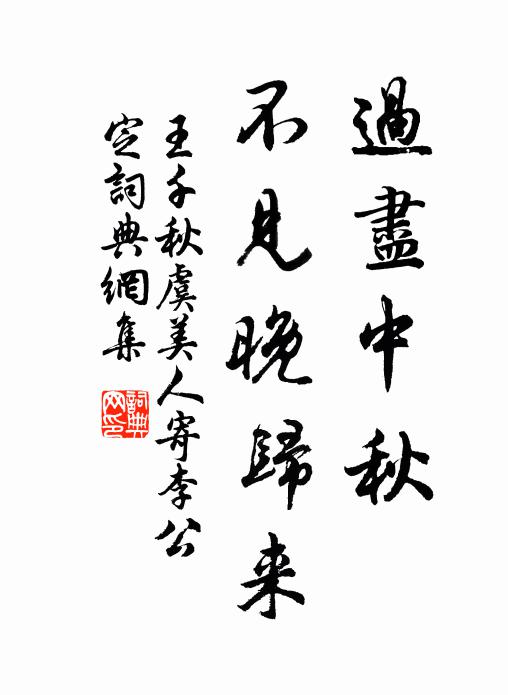 過盡中秋
不見晚歸来
王千秋虞美人寄李公
定詞典網集
詞典网印